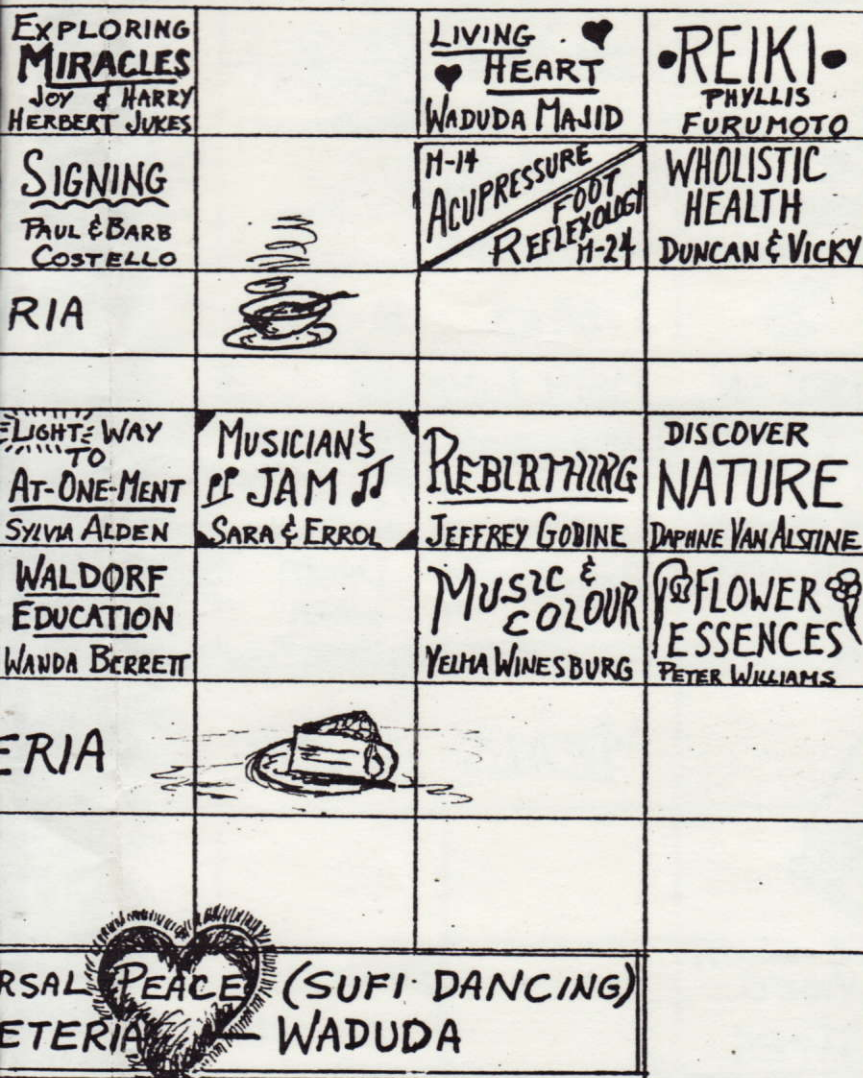 EXPLORING
MIRACLES
JOY & HARRY
HERBERT JUKES
LIVING
HEART
WADUDA MAJID
•REIKI•
PHYLLIS
FURUMOTO
SIGNING
PAUL & BARB
COSTELLO
M-14
ACUPRESSURE
FOOT
REFLEXOLOGY
M-24
WHOLISTIC
HEALTH
DUNCAN & VICKY
RIA
LIGHT WAY
TO
AT-ONE-MENT
SYLVIA ALDEN
MUSICIAN'S
JAM
SARA & ERROL
REBIRTHING
JEFFREY GOBINE
DISCOVER
NATURE
DAPHNE VAN ALSTINE
WALDORF
EDUCATION
WANDA BERRETT
MUSIC &
COLOUR
VELMA WINESBURG
FLOWER
ESSENCES
PETER WILLIAMS
ERIA
RSAL PEACE (SUFI DANCING)
ETERIA — WADUDA